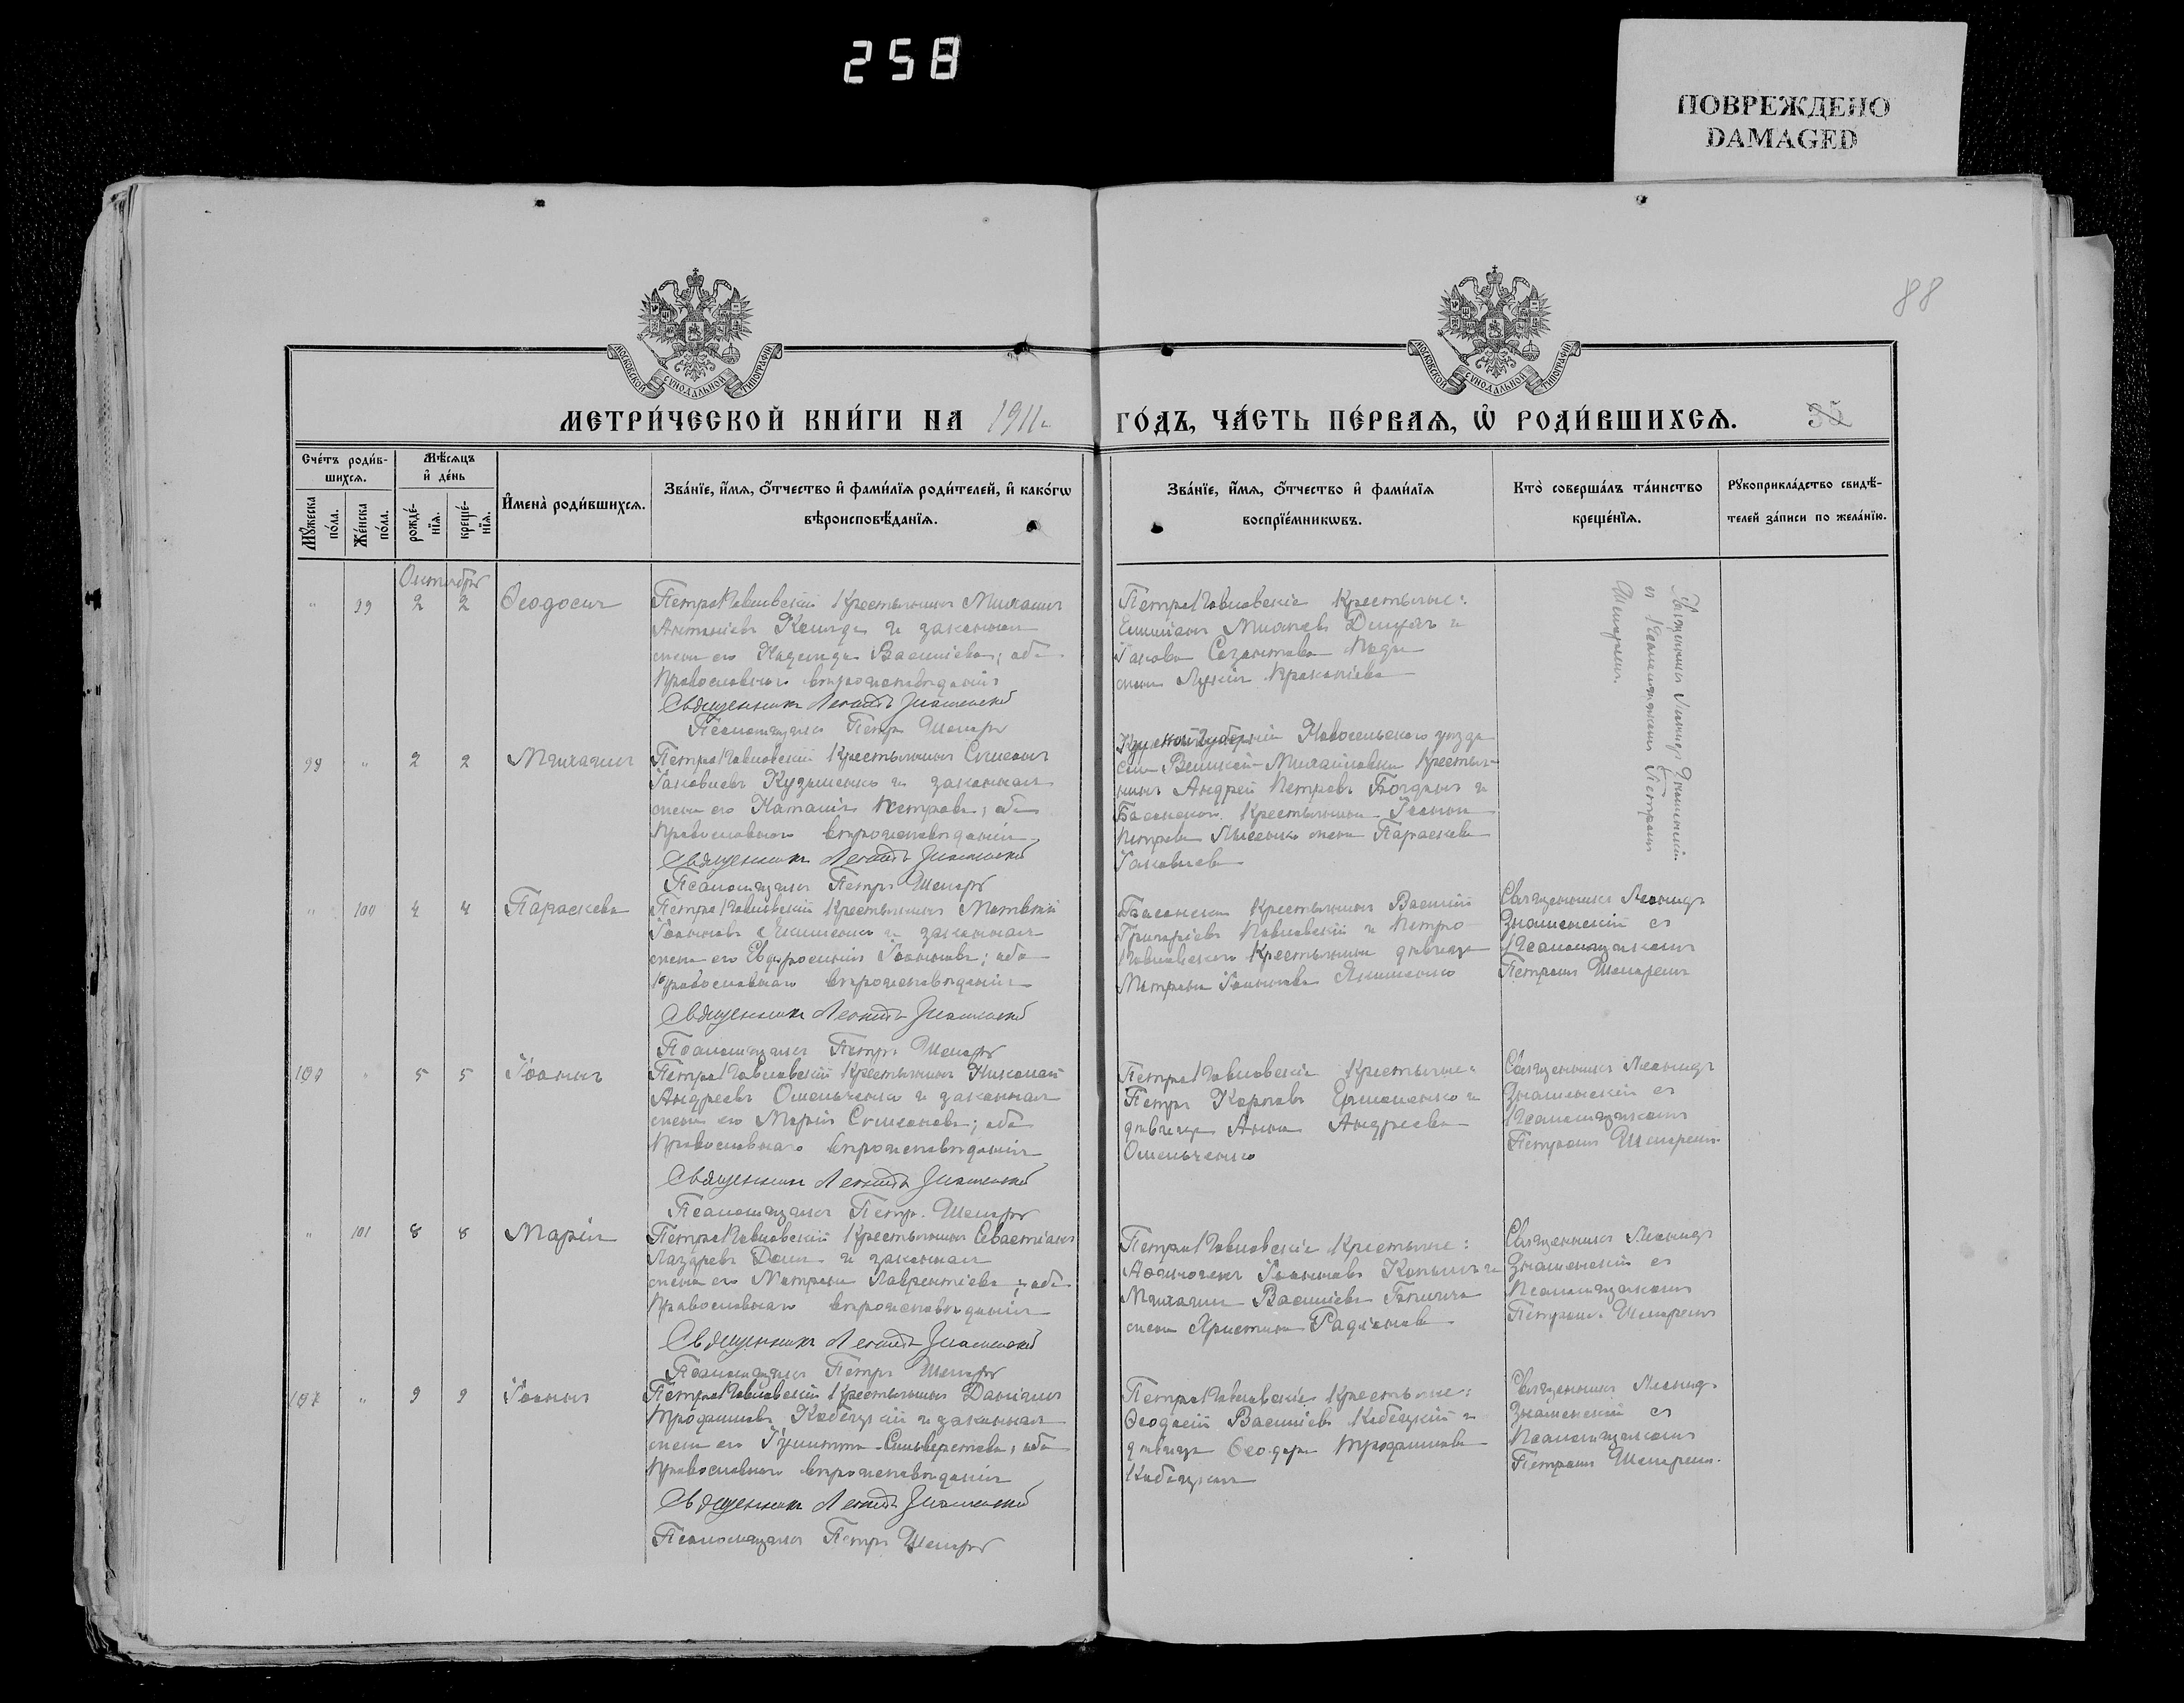 258
ПОВРЕЖДЕНО
DAMAGED
88
МОСКОВСКОЙ СѴНОДАЛЬНОЙ ТИПОГРАФІИ
МОСКОВСКОЙ СѴНОДАЛЬНОЙ ТИПОГРАФІИ
МЕТРИ́ЧЕСКОЙ КНИ́ГИ НА 1911 г. ГО́ДЪ, ЧА́СТЬ ПЕ́РВАѦ, Ѡ҆ РОДИ́ВШИХСѦ.
Сче́тъ роди́в-
шихсѧ.
Мꙋ́жеска по́ла.
Же́нска по́ла.
Мѣ́сѧцъ
и҆ де́нь
рожде́-
нїѧ.
креще́-
нїѧ.
И҆мена̀ роди́вшихсѧ.
Зва́нїе, и҆́мѧ, о҆́тчество и҆ фами́лїѧ роди́телей, и҆ како́гѡ
вѣроисповѣ́данїѧ.
Зва́нїе, и҆́мѧ, о҆́тчество и҆ фами́лїѧ
воспрїе́мникѡвъ.
Кто̀ соверша́лъ та́инство
креще́нїѧ.
Рꙋкоприкла́дство свидѣ́-
телей за́писи по жела́нїю.
Октябрь
" 99 2 2 Ѳеодосія
ПетроПавловскій крестьянинъ Михаилъ
и законная
жена его Надежда Васильева; оба
Православнаго вѣроисповѣданія
Священникъ Леонидъ Знаменскій
Псаломщикъ Петръ
ПетроПавловскіе крестьяне:
Якова
жена Прокопіева
Священникъ Леонидъ Знаменскій
съ Псаломщикомъ Петромъ
99 " 2 2 Михаилъ
ПетроПавловскій крестьянинъ Симеонъ
Іаковлевъ Кузьменко и законная
жена его Наталія Петрова; оба
Православнаго вѣроисповѣданія
Священникъ Леонидъ Знаменскій
Псаломщикъ Петръ
губерніи уѣзда
Михайловки крестья-
нинъ Андрей Петровъ Богданъ и
крестьянина Іоанна
Петрова Лысенко жена Параскева
Іаковлева
" 100 4 4 Параскева
ПетроПавловскій крестьянинъ Матвѣй
Іоанновъ и законная
жена его Евфросинія Іоаннова; оба
Православнаго вѣроисповѣданія
Священникъ Леонидъ Знаменскій
Псаломщикъ Петръ
крестьянинъ Василій
Григоріевъ Павловскій и Петро
Павловскаго крестьянина дѣвица
Матрона Іоаннова
Священникъ Леонидъ
Знаменскій съ
Псаломщикомъ
Петромъ
100 " 5 5 Іоаннъ
ПетроПавловскій крестьянинъ Николай
Андреевъ Омельченко и законная
жена его Марія Симеонова; оба
Православнаго вѣроисповѣданія
Священникъ Леонидъ Знаменскій
Псаломщикъ Петръ
ПетроПавловскіе крестьяне:
Петръ Карповъ Ермоленко и
дѣвица Анна Андреева
Омельченко
Священникъ Леонидъ
Знаменскій съ
Псаломщикомъ
Петромъ
" 101 8 8 Марія
ПетроПавловскій крестьянинъ Севастіанъ
Лазаревъ и законная
жена его Матрона Лаврентіева; оба
Православнаго вѣроисповѣданія
Священникъ Леонидъ Знаменскій
Псаломщикъ Петръ
ПетроПавловскіе крестьяне:
Іоанновъ и
Михаила Васильева
жена Христина Радіонова
Священникъ Леонидъ
Знаменскій съ
Псаломщикомъ
Петромъ
101 " 9 9 Іоаннъ
ПетроПавловскій крестьянинъ Даніилъ
Трофимовъ Кобецкій и законная
жена его Іулитта Сильвестрова; оба
Православнаго вѣроисповѣданія
Священникъ Леонидъ Знаменскій
Псаломщикъ Петръ
ПетроПавловскіе крестьяне:
Ѳеодосій Васильевъ Кобецкій и
дѣвица Ѳеодора Трофимова
Кобецкая
Священникъ Леонидъ
Знаменскій съ
Псаломщикомъ
Петромъ